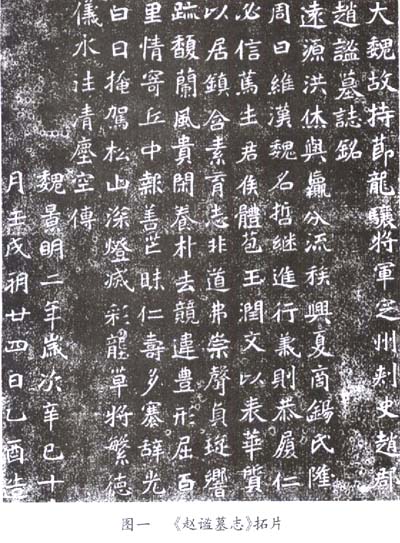 大魏故持節龍驤將軍定州刾史趙郡
趙謐墓誌銘
遠源洪休與羸分流族興夏商錫氏隆
周曰維漢魏名哲継進行兼則恭履仁
必信萬主君侯體苞玉潤文以表華質
以居鎮含素育志非道弗崇聲貞琁響
䟽馥蘭風貴閈養朴去競違豊形屈百
里情寄丘中報善芒昧仁壽多褰辞光
白日掩駕松山深燈滅彩壟草將繁德
儀永往清塵空傳
魏景明二年歲次辛巳十
月壬戌朔廿四日乙酉造
图一 《赵谧墓志》拓片